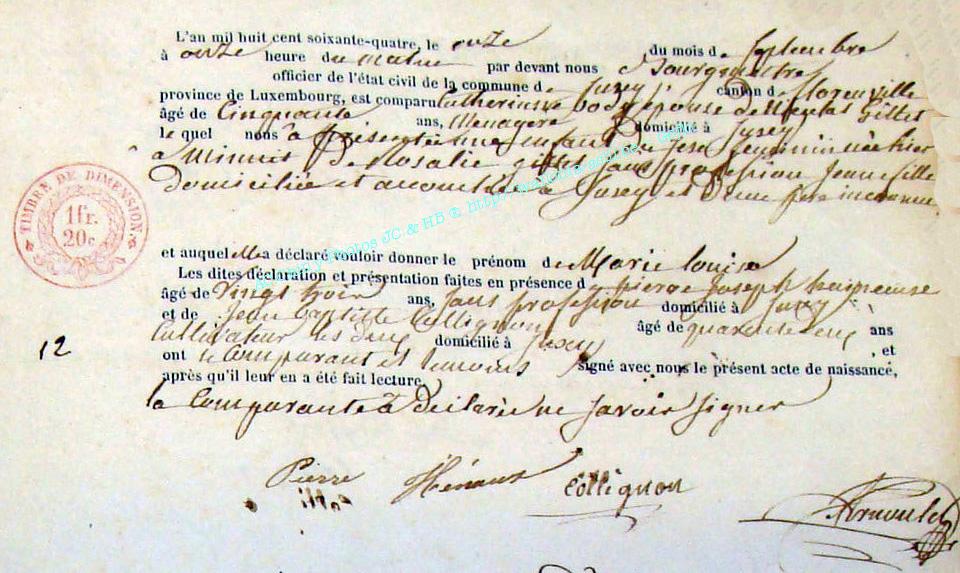 L'an mil huit cent soixante-quatre, le onze du mois d septembre
à onze heure du matin par devant nous Bourgmestre
officier de l'état civil de la commune d Juzey canton d florenville
province de Luxembourg, est comparu Catherinne épouse de Nicolas Gillet
âgé de Cinquante ans, Menagère domicilié à Juzey
le quel nous à présentée une enfant du sexe feminin née hier
à Minuit de Rosalie gillet sans profession Jeune fille
domiciliée et accouchée à Juzey et d'une père inconnu
TIMBRE DE DIMENSION.
1 fr.
20 c
et auquel elle a déclaré vouloir donner le prénom de Marie louise
Les dites déclaration et présentation faites en présence d pierre Joseph
âgé de Vingt trois ans, sans profession domicilié à Juzey
et de Jean baptiste Collignon âgé de quarante cinq ans
Cultivateur les deux domicilié à Juzey, et
ont le Comparant et temoins signé avec nous le présent acte de naissance,
après qu'il leur en a été fait lecture
12
la Comparante à déclarée ne savoir signer
Pierre Collignon